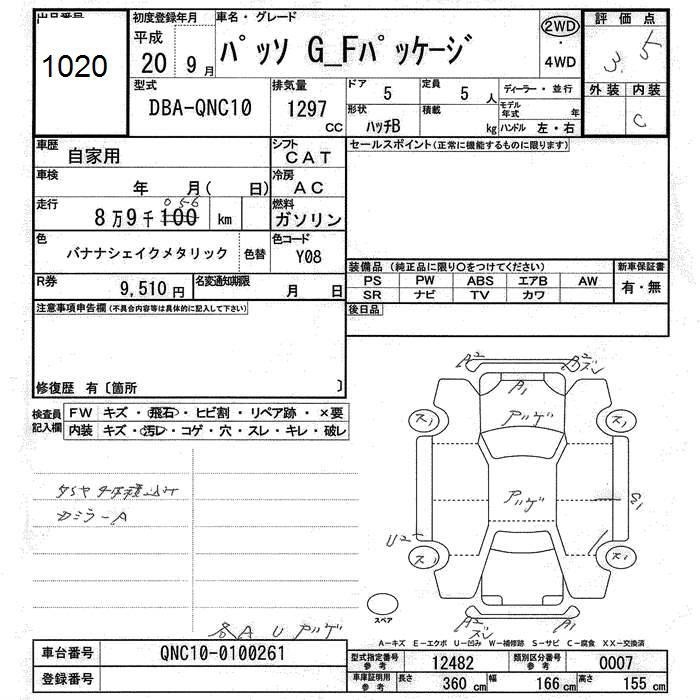 出品番号 初度登録年月 車名・グレード 2WD ・ 4WD 評価点
1020 平成 20年 9月 パッソ G_Fパッケージ 3.5
型式 DBA-QNC10 排気量 1297 CC ドア 5 定員 5 人 ディーラー・並行 外装 内装 C
形状 ハッチB 積載 kg モデル年式 年 ハンドル 左・右
車歴 自家用 シフト CAT セールスポイント(正常に機能するものに限ります)
車検 年 月( 日) 冷房 AC
走行 8万9千100 056 km 燃料 ガソリン
色 バナナシェイクメタリック 色替 色コード Y08
装備品 (純正品に限り○をつけてください) 新車保証書
R券 9,510円 名変通知期限 月 日 PS PW ABS エアB AW 有・無
SR ナビ TV カワ
注意事項申告欄(不具合内容等は具体的に記入して下さい) 後日品
修復歴 有〔箇所 〕
検査員記入欄 FW キズ・飛石・ヒビ割・リペア跡・×要
内装 キズ・汚レ・コゲ・穴・スレ・キレ・破レ
A2 B2 ズレ
A1
アツゲ
ス1 ス1
アツゲ
U2
ス1 ス1
カミラーA
スペア
A2 ズレ A1
各A U アツゲ
A-キズ E-エクボ U-凹み W-補修跡 S-サビ C-腐食 XX-交換済
車台番号 QNC10-0100261 型式指定番号 参考 12482 類別区分番号 参考 0007
登録番号 車庫証明用 参考 長さ 360 cm 幅 166 cm 高さ 155 cm